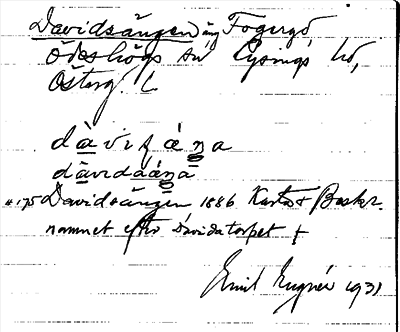 Davidsängen äng Fogergö
Ödeshögs sn Lysings hd,
Österg. L
dàvisáŋa
dāvidááŋā
#175 Davidsängen 1886 Karta & Beskr.
namnet efter Davidatorpet †
Emil 1931